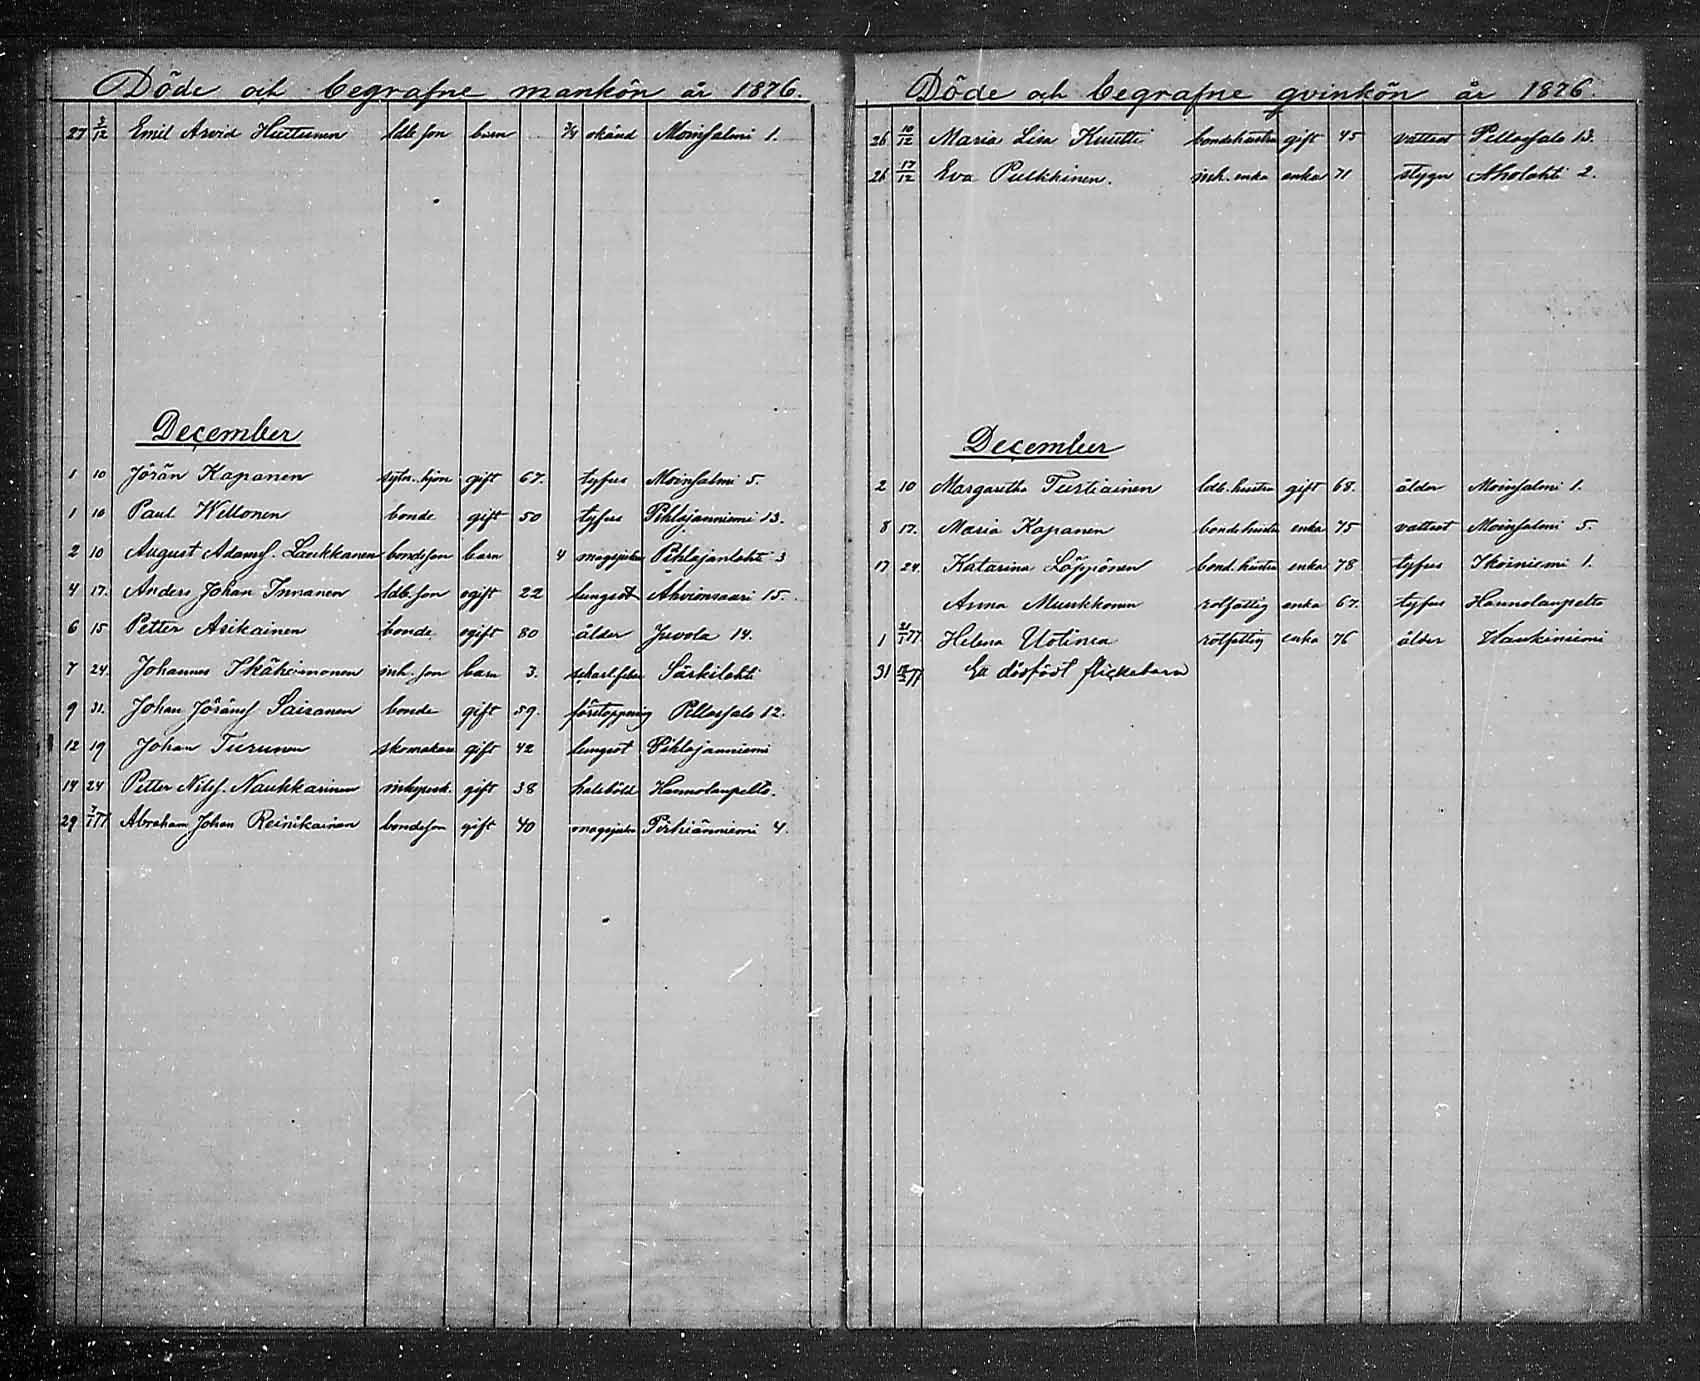 Döde och begrafne mankön år 1876.
27 3/12 Emil Arvid Huttunen ldb. son barn 3/4 okänd Moinsalmi 1.
December
1 10 Jöran Kapanen sytn. hjon gift 67. tyfus Moinsalmi 5.
1 10 Paul Kellonen bonde gift 50 tyfus Pihlajanniemi 13.
2 10 August Adamsf. Laukkanen bondeson barn 4 magsjukn Pihlajanlahti 3
4 17. Anders Johan Innanen ldb. son ogift 22 lungsot Ahvionsaari 15.
6 15 Petter Asikainen bonde ogift 80 ålder Juvola 14.
7 24. Johannes Ikäheimonen inh. son barn 3. scharl.feber Särkilahti
9 31. Johan Jöransf Saisanen bonde gift 59. förstoppning Pellossalo 12.
12 19 Johan Turunen skomakare gift 42 lungsot Pihlajanniemi
14 24 Petter Nilsf. Naukkarinen inhyses k. gift 38 halsböld Hannolanpelto.
29 7/1 77 Abraham Johan Reinikainen bondeson gift 40 magsjukn Pirhiänniemi 4.
Döde och begrafne qvinkön år 1876.
26 10/12 Maria Lisa Kuutti bondehustru gift 45 vattsot Pellossalo 13.
26 17/12 Eva Pulkkinen. inh. enka enka 71 stygn Aholahti 2.
December
2 10 Margaretha Turtiainen ldb. hustru gift 68. ålder Moinsalmi 1.
8 17. Maria Kapanen bondehustru enka 75 vattsot Moinsalmi 5.
17 24. Katarina Löppönen bond. hustru enka 78 tyfus Ikoiniemi 1.
Anna Munkkonen rotfattig enka 67. tyfus Hannolanpelto
1 21/1 77 Helena Uotinen rotfattig enka 76 ålder Haukiniemi
31 18/2 77 Ett dödfödt flickebarn